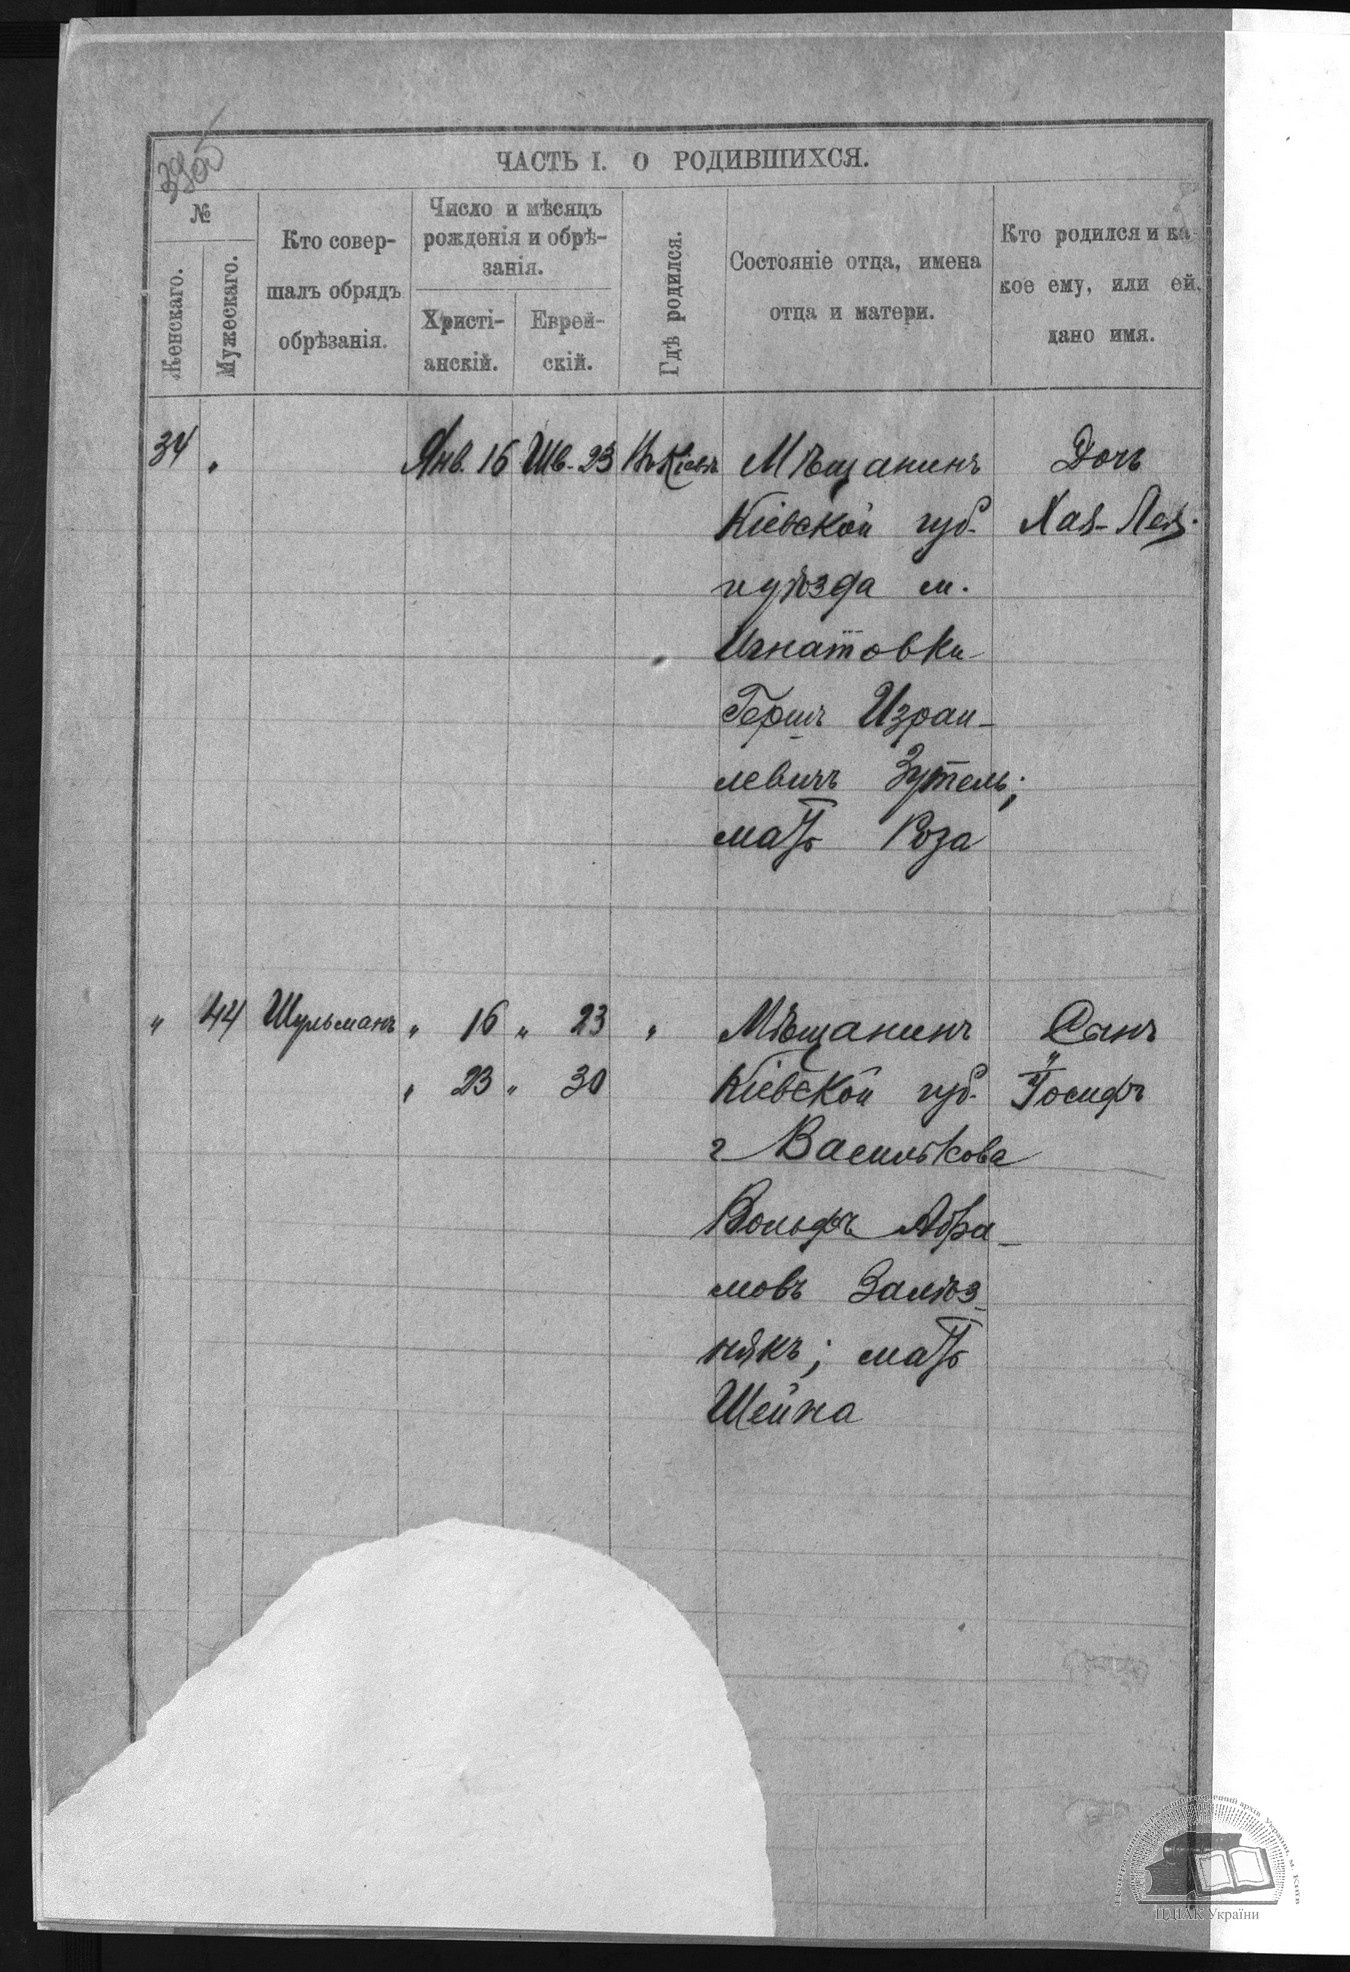 ЧАСТЬ I. О РОДИВШИХСЯ.
№
Женскаго.
Мужескаго.
Кто совер-
шалъ обрядъ
обрѣзанія.
Число и мѣсяцъ
рожденія и обрѣ-
занія.
Христі-
анскій.
Еврей-
скій.
Гдѣ родился.
Состояніе отца, имена
отца и матери.
Кто родился и ка-
кое ему, или ей,
дано имя.
34 " Янв. 16 Шв. 23 Въ Кіевѣ Мѣщанинъ Дочь
Кіевской губ. Хая-Лея.
и уѣзда м.
Игнатовки
Гершъ Израи-
левичъ Зутель;
мать Роза
" 44 Шульманъ " 16 " 23 " Мѣщанинъ Сынъ
" 23 " 30 Кіевской губ. Іосифъ
г Василькова
Вольфъ Абра-
мовъ Залѣз-
някъ; мать
Шейна
ЦДІАК України